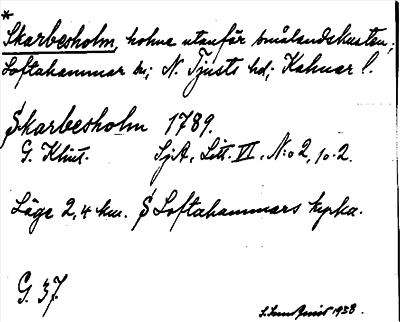 *
Skarbesholm, holme utanför Smålandskusten,
Loftahammar sn; N. Tjusts hd; Kalmar l.
Skarbesholm 1789.
G. Klint. SjA, Litt. VI, N:o 2, 10.2.
Läge 2,4 km. S Loftahammars kyrka.
G. 37.
1938.